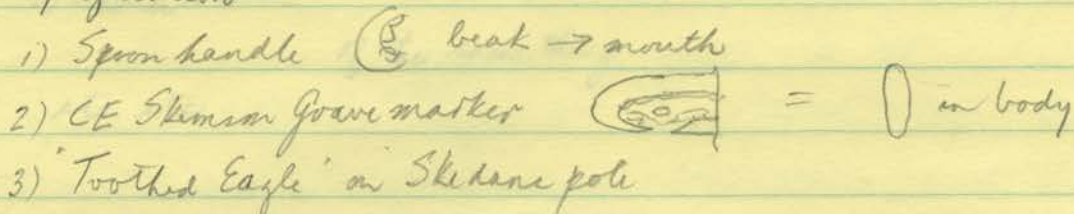 1) Spoon handle beak → mouth
2) CE Skinson Grave marker = in body
3) "Toothed Eagle" on Skedans pole